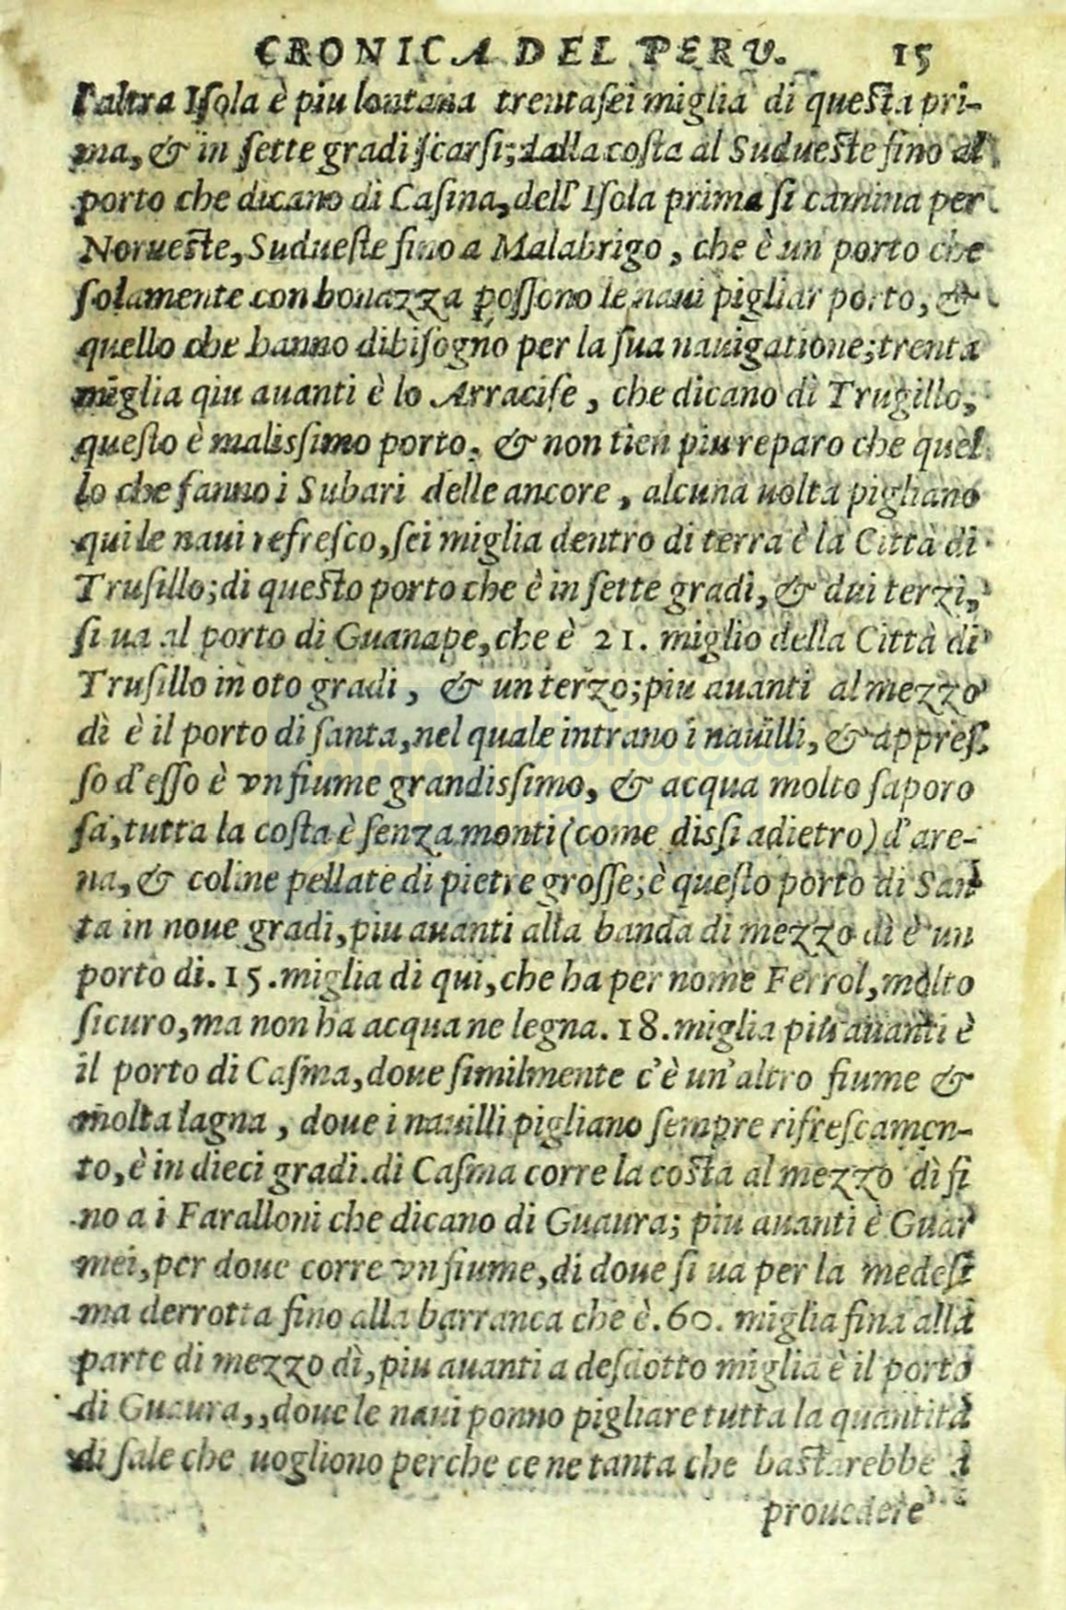 CRONICA DEL PERU. 15
l'altra Isola è piu lontana trentasei miglia di questa pri-
ma, & in sette gradi scarsi; dalla costa al Sudueste fino al
porto che dicano di Casina, dell' Isola prima si camina per
Norueste, Sudueste fino a Malabrigo, che è un porto che
solamente con bonazza possono le naui pigliar porto, &
quello che hanno dibisogno per la sua nauigatione; trenta
miglia qiu auanti è lo Arracife, che dicano di Trugillo,
questo è malissimo porto, & non tien piu reparo che quel
lo che fanno i Subari delle ancore, alcuna uolta pigliano
qui le naui refresco, sei miglia dentro di terra è la Città di
Trusillo; di questo porto che è in sette gradi, & dui terzi,
si ua al porto di Guanape, che è 21. miglio della Città di
Trusillo in oto gradi, & un terzo; piu auanti al mezzo
dì è il porto di santa, nel quale intrano i nauilli, & appres
so d'esso è vn fiume grandissimo, & acqua molto saporo
sa, tutta la costa è senza monti (come dissi adietro) d'are-
na, & coline pellate di pietre grosse; è questo porto di San
ta in noue gradi, piu auanti alla banda di mezzo dì è un
porto di. 15. miglia di qui, che ha per nome Ferrol, molto
sicuro, ma non ha acqua ne legna. 18. miglia piu auanti è
il porto di Casma, doue similmente c'è un'altro fiume &
molta lagna, doue i nauilli pigliano sempre rifrescamen-
to, è in dieci gradi. di Casma corre la costa al mezzo dì fi
no a i Faralloni che dicano di Guaura; piu auanti è Guar
mei, per doue corre vn fiume, di doue si ua per la medesi
ma derrotta fino alla barranca che è. 60. miglia fina alla
parte di mezzo dì, piu auanti a desdotto miglia è il porto
di Guaura,, doue le naui ponno pigliare tutta la quantità
di sale che uogliono perche ce ne tanta che bastarebbe à
prouedere
biblioteca
nacional